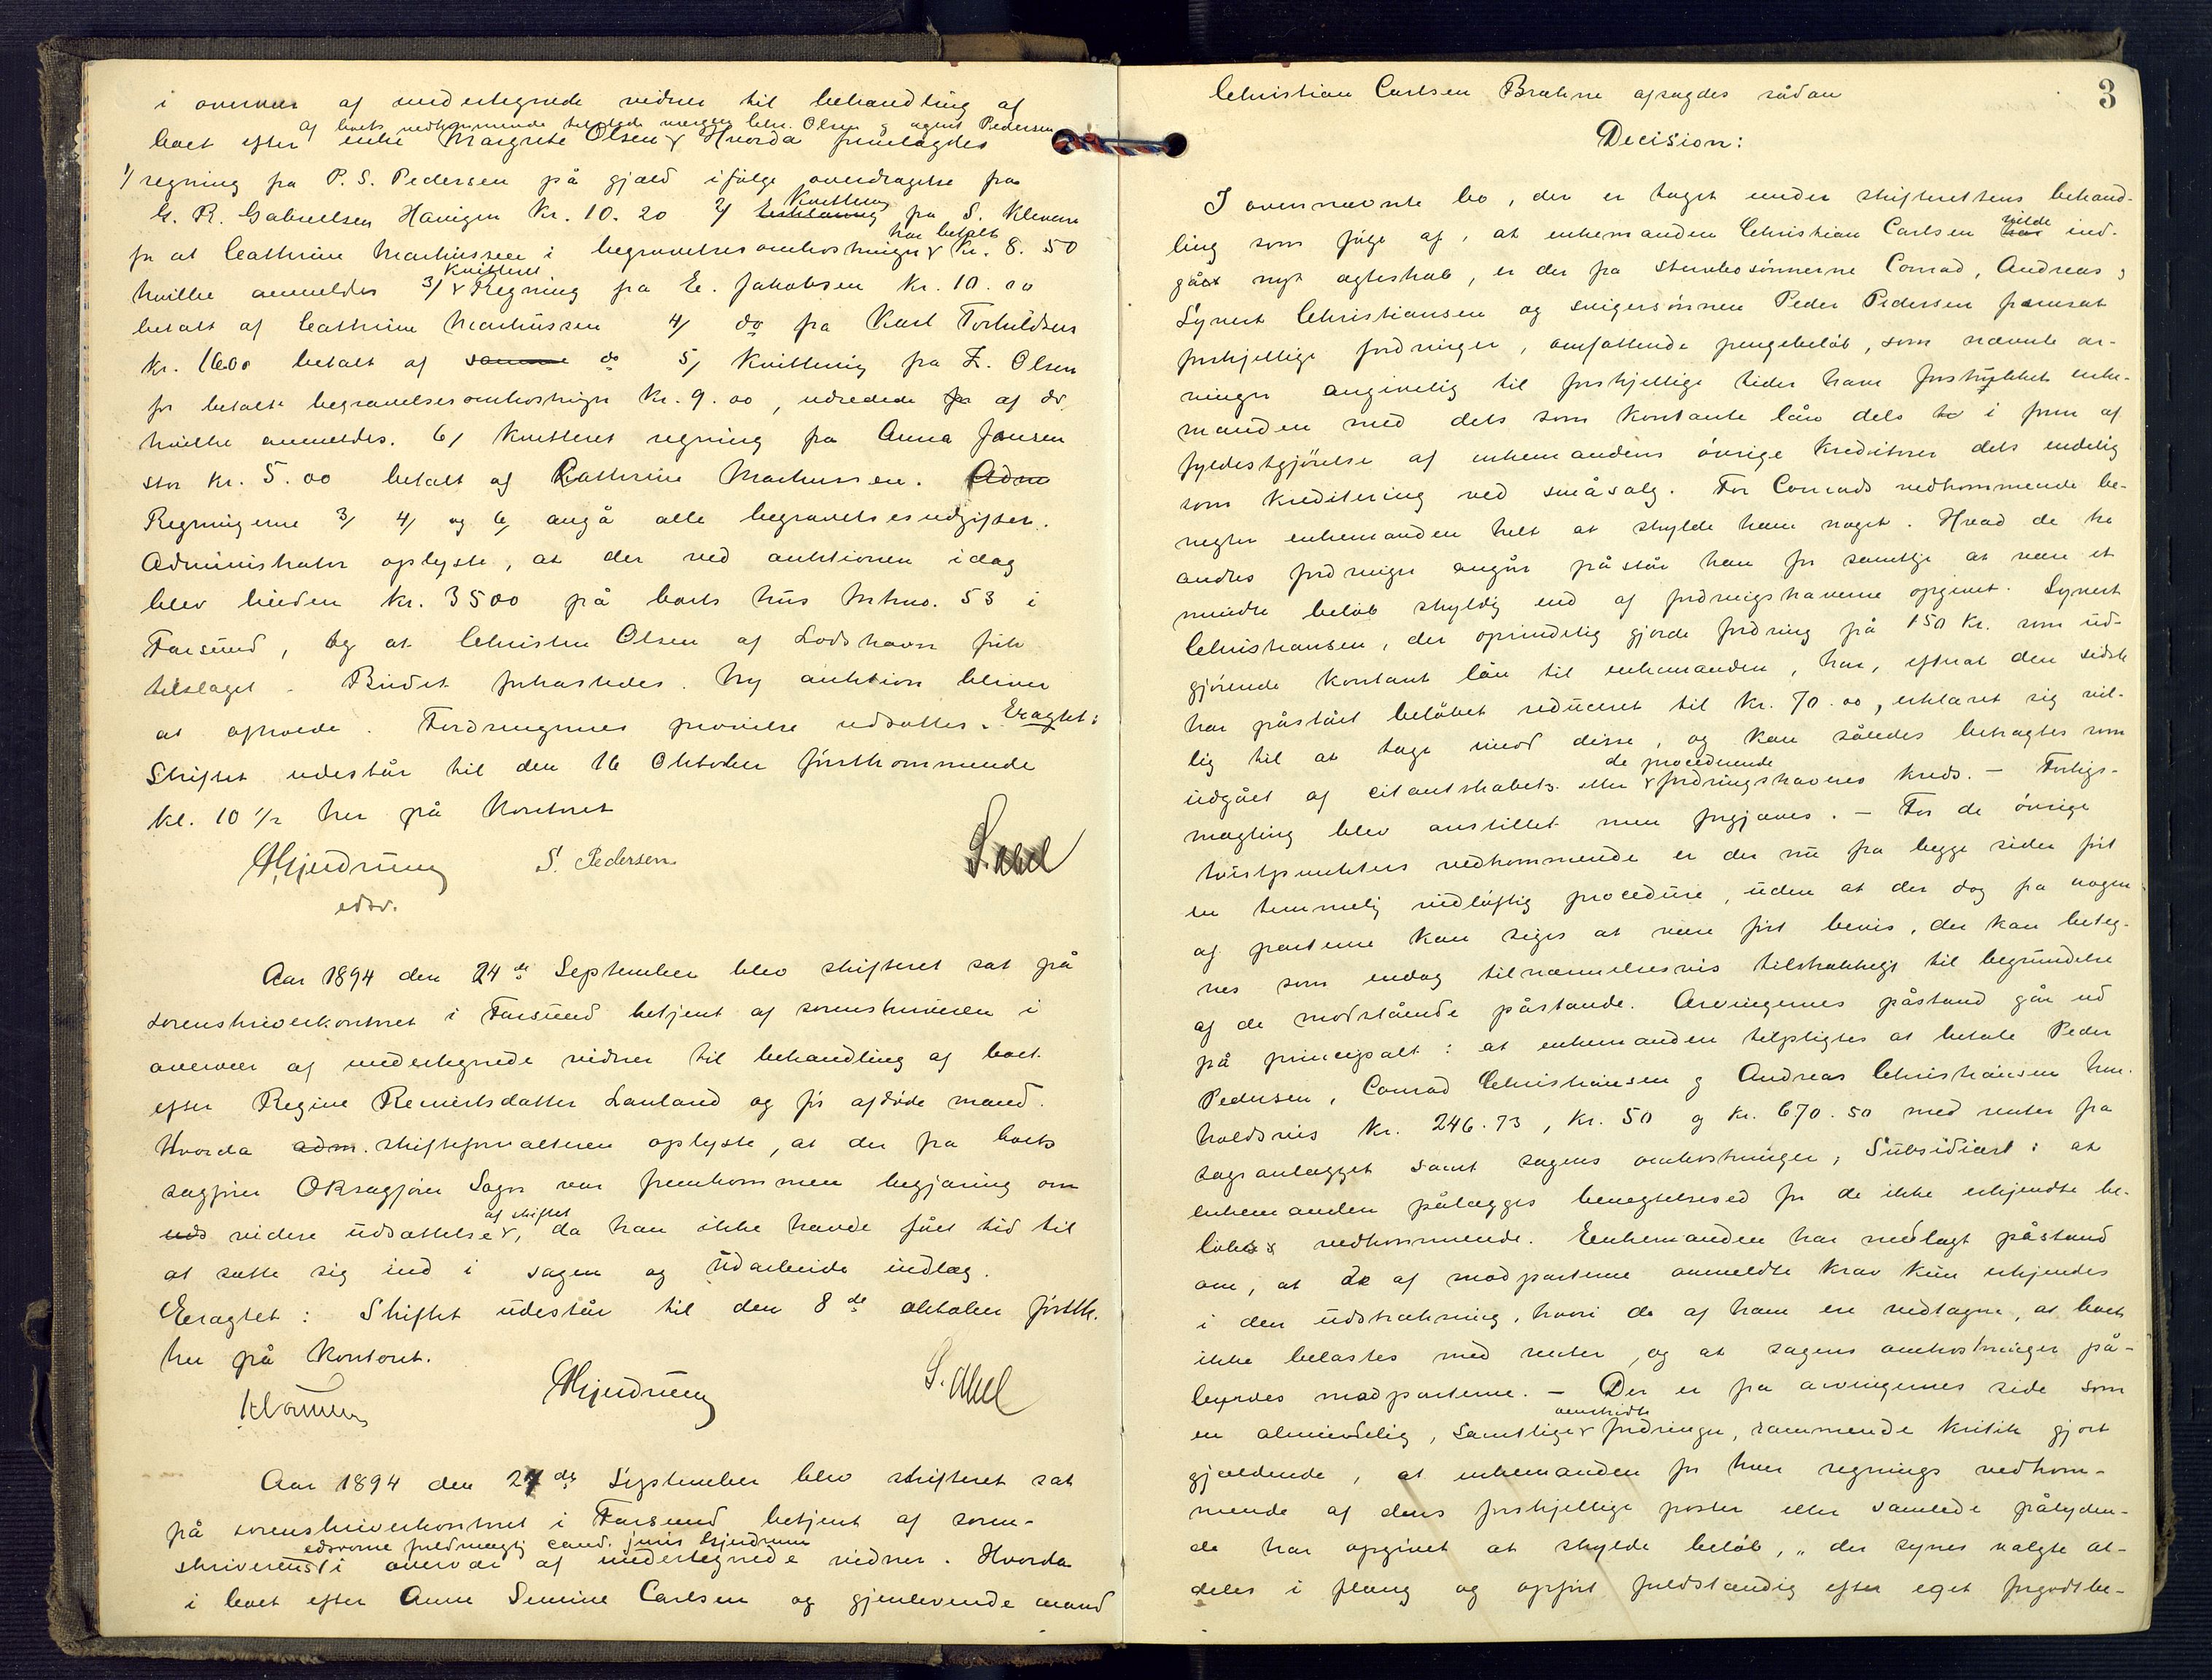 i overvær af undertegnede vidner til behandling af
af boets vedkommende tilstede værge Chr. Olsen og agent Pedersen
boet efter enke Margrete Olsen Hvorda fremlagdes
1/ regning fra P. S. Pedersen på gjæld ifølge overdragelse fra
G. R. Gabrielsen Havigen Kr. 10.20 2/ Erklæring Kvittering fra S. Klevene
for at Cathrine Markussen i begravelsesomkostninger har betalt Kr. 8.50
hvilke anmeldes 3/ Kvitteret Regning fra E. Jakobsen Kr. 10.00
betalt af Cathrine Markussen 4/ do fra Karl Torkildsen
Kr. 16.00 betalt af samme do 5/ Kvittering fra Z. Olsen
for betalte begravelsesomkostniger Kr. 9.00, udredede for af do,
hvilke anmeldes. 6/ Kvitteret regning fra Anna Jansen
stor Kr. 5.00 betalt af Cathrine Markussen. Adm
Regningerne 3/ 4/ og 6/ angå alle begravelsesudgifter.
Administrator oplyste, at der ved auktionen idag
blev buden Kr. 3500 på boets hus Mtrno. 53 i
Farsund, og at Christen Olsen af Lodshavn fik
tilslaget. Budet forkastedes. Ny auktion bliver
at afholde. Fordringernes prøvelse udsættes. Eragtet:
Skiftet udestår til den 16 Oktober førstkommende
kl. 10 1/2 her på Kontoret
AHjendrum S. Pedersen S. Abel
edsv.
Aar 1894 den 24de September blev skifteret sat på
sorenskriverkontoret i Farsund betjent af sorenskriveren i
overvær af undertegnede vidner til behandling af boet
efter Regine Reinertsdatter Lauland og før afdøde mand.
Hvorda adm. skifteforvalteren oplyste, at der fra boets
sagfører ORsagfører Sager var fremkommen begjæring om
uds videre udsættelse af skiftet, da han ikke havde fået tid til
at sætte sig ind i sagen og udarbeide indlæg.
Eragtet: Skiftet udestår til den 8de oktober førstk.
her på Kontoret.
AHjendrum S. Abel
Aar 1894 den 27de September blev skifteret sat
på sorenskriverkontoret i Farsund betjent af soren-
edsvorne fuldmægtig cand. juris Gjerdrum
skriverens i overvær af undertegnede vidner. Hvorda
i boet efter Anne Semine Carlsen og gjenlevende mand
3
Christian Carlsen Brahne afsagdes sådan
Decision:
I ovennævnte bo, der er taget under skifterettens behand-
ling som følge af, at enkemanden Christian Carlsen har vilde ind-
gået nyt ægteskab, er der fra stervbosønnerne Conrad, Andreas og
Synert Christiansen og svigersønnen Peder Pedersen fremsat
forskjellige fordringer, omfattende pengebeløb, som nævnte ar-
vinger angivelig til forskjellige tider have forstrukket enke-
manden med dels som kontante lån dels to i form af
fyldestgjørelse af enkemandens øvrige Kreditorer dels endelig
som kreditering ved småsalg. For Conrads vedkommende be-
negter enkemanden helt at skylde ham noget. Hvad de tre
andres fordringer angår påstår han for samtlige at være et
mindre beløb skyldig end af fordringshaverne opgivet. Synert
Christiansen, der oprindelig gjorde fordring på 150 Kr. som ud-
gjørende kontant lån til enkemanden, har, efterat den sidste
har påstået beløbet reduceret til Kr. 70.00, erklæret sig vil-
lig til at tage imod disse, og kan således betragtes som
udgået af citantskabets eller de procederende fordringshaveres kreds. - Forligs-
mægling blev anstillet men forgjæves. - For de øvrige
tvistpunkters vedkommende er der nu fra begge sider ført
en temmelig vidløftig procedure, uden at der dog fra nogen
af parterne kan siges at være ført bevis, der kan beteg-
nes som endog tilnærmelsesvis tilstrækkeligt til begrundelse
af de modstående påstande. Arvingernes påstand går ud
på principalt: at enkemanden tilpligtes at betale Peder
Pedersen, Conrad Christiansen og Andreas Christiansen hen-
holdsvis Kr. 246.73, Kr. 50 og Kr. 670.50 med renter fra
sagsanlægget samt sagens omkostninger; Subsidiært: at
enkemanden pålægges benegtelsesed for de ikke erkjendte be-
løbs vedkommende. Enkemanden har nedlagt påstand
om, at de af modparterne anmeldte krav kun erkjendes
i den udstrækning, hvori de af ham ere vedtagne, at boet
ikke belastes med renter, og at sagens omkostninger på-
byrdes modparterne. - Der er fra arvingernes side som
en almindelig, samtlige omstridte fordringer, rammende kritik gjort
gjældende, at enkemanden for hver regnings vedkom-
mende af dens forskjellige poster eller samlede pålyden-
de har opgivet at skylde beløb, „ der synes valgte al-
deles i flæng og opført fuldstændig efter eget forgodtbe-